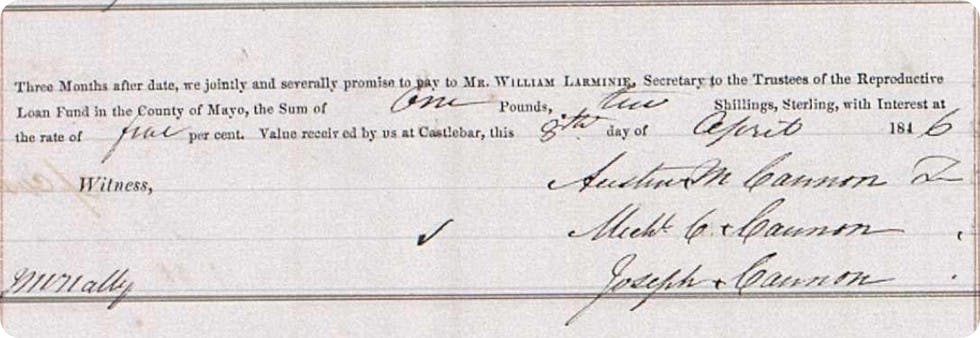 Three Months after date, we jointly and severally promise to pay to MR. WILLIAM LARMINIE, Secretary to the Trustees of the Reproductive
Loan Fund in the County of Mayo, the Sum of One Pounds, ten Shillings, Sterling, with Interest at
the rate of five per cent. Value received by us at Castlebar, this 8th day of April 1846
Witness, Austin M Cannon
Michl C + Cannon
McNally Joseph + Cannon